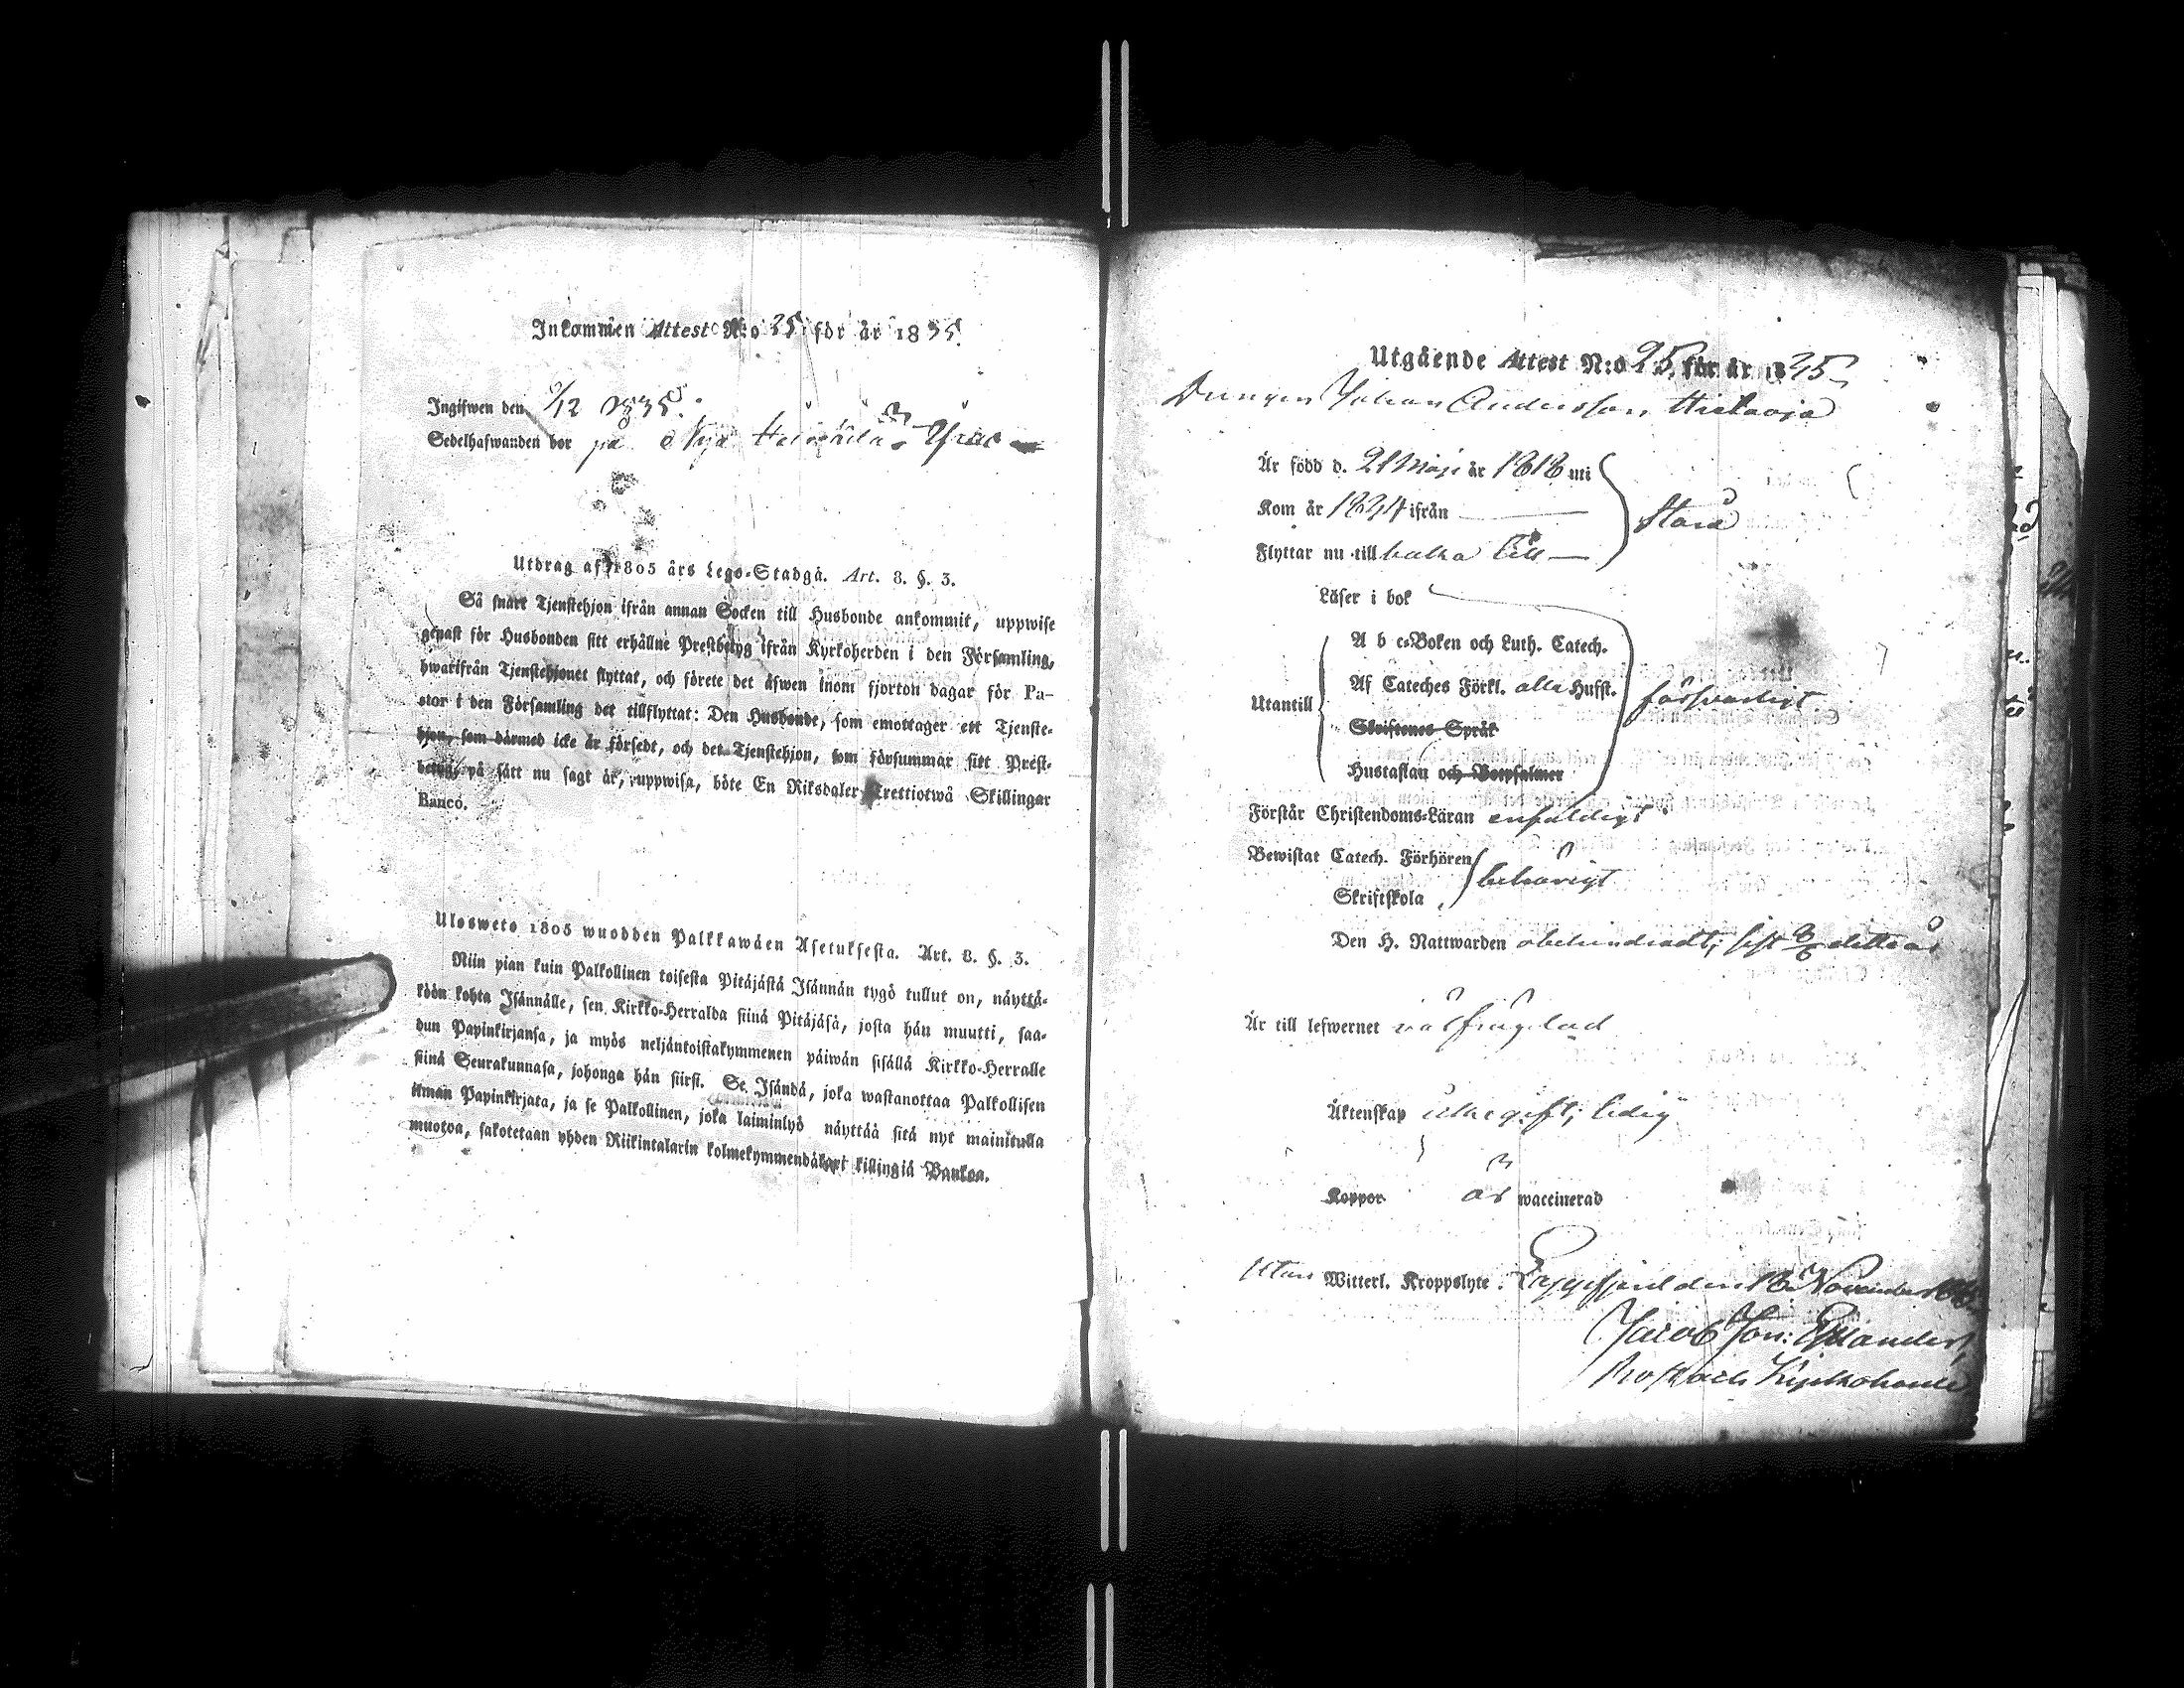 Inkommen Attest N:o 35 för år 1835.
Ingifwen den 9/12 1835.
Sedelhafwanden bor på Nya
Utdrag af 1805 års Lego-Stadga. Art. 8. §. 3.
Så snart Tjenstehjon ifrån annan Socken till Husbonde ankommit, uppwise
genast för Husbonden sitt erhållne Prestbetyg ifrån Kyrkoherden i den Församling,
hwarifrån Tjenstehjonet flyttat, och förete det äfwen inom fjorton dagar för Pa-
stor i den Församling det tillflyttat: Den Husbonde, som emottager ett Tjenste-
hjon, som därmed icke är försedt, och det Tjenstehjon, som försummar sitt Prest-
betyg, på sätt nu sagt är, uppwisa, böte En Riksdaler Trettiotwå Skillingar
Banco.
Ulosweto 1805 wuodden Palkkawäen Asetuksesta. Art. 8. §. 3.
Niin pian kuin Palkollinen toisesta Pitäjästä Isännän tygö tullut on, näyttä-
köön kohta Isännälle, sen Kirkko-Herralda siinä Pitäjäsä, josta hän muutti, saa-
dun Papinkirjansa, ja myös neljäntoistakymmenen päiwän sisällä Kirkko-Herralle
siinä Seurakunnasa, johonga hän siirsi. Se Isändä, joka wastanottaa Palkollisen
ilman Papinkirjata, ja se Palkollinen, joka laiminlyö näyttää sitä nyt mainitulla
muotoa, sakotetaan yhden Riikintalarin kolmekymmendäkaxi killingiä Bankoa.
Utgående Attest N:o 25 för år 1835
Drengen Johan Andersson
Är född d. 21 Maji år 1818 uti
Kom år 1834 ifrån
Flyttar nu till baka till
Läser i bok
A b c-Boken och Luth. Catech.
Utantill Af Cateches Förkl. alla Hufst. försvarligt
Skriftenes Språk
Hustaflan och Botpsalmer
Förstår Christendoms-Läran enfaldigt
Bewistat Catech. Förhören behörigt
Skriftskola
Den H. Nattwarden obehindradt; sist detta år
Är till lefwernet välfrägdad
Äktenskap icke gift; ledig
Koppor är waccinerad
utan Witterl. Kroppslyte. den 18 November
Jacob Joh:
Prost och Kyrkoherde